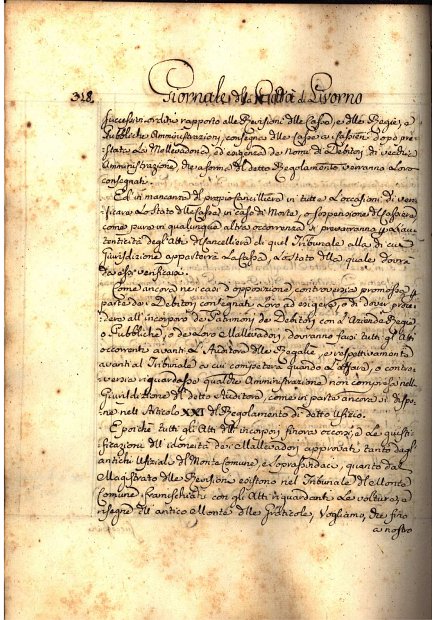 318.
Giornale della Città di Livorno
successivi ordini rapporto alle Revisioni delle Casse, e delle Regie, e
Pubbliche Amministrazioni, consegna delle Casse a' Cassieri dopo pre=
stata La Mallevadoria, ed esigenza de Nomi di Debitori di vecchia
Amministrazione, che a forma del detto Regolamento verranno Loro
consegnati.
Ed in mancanza del proprio Cancelliere in tutte L'occasioni di veri
ficare Lo Stato delle Casse in caso di Morte, o sospensione di Cassiere
come pure in qualunque altra occorrenza si prevarranno per L'au
tenticità degl'Atti di Cancelliere di quel Tribunale alla di cui
Giurisdizione apparterrà La Cassa, Lo stato della quale dovrà
da essi verificarsi.
Come ancora nei casi di opposizione, controversia promossa per
parte dei Debitori consegnati Loro ad esigere, o di dover proce
dere all'incorporo de Patrimoni de Debitori con L'Aziende Regie,
o Pubbliche, o de Loro Mallevadori, dovranno farsi tutti gl'Atti
occorrenti avanti L'Auditore delle Regalie, e respettivamente
avanti al Tribunale a cui competerà quando L'affare, o contro
versia riguardasse qualche Amministrazione non compresa nella
Giurisdizione del detto Auditore, come in parte ancora si dispo
ne nell Articolo XXI del Regolamento di detto Ufizio.
E poiche tutti gl'Atti dell'incorpori finora occorsi, e Le giusti
ficazioni dell'idoneità dei Mallevadori approvati tanto dagl'
antichi Ufiziali del Monte Comune, e Soprassindaci, quanto dal
Magistrato delle Revisioni esistono nel Tribunale del Monte
Comune framischiati con gl'Atti riguardanti Le volture, a
insegne dell antico Monte delle Graticole, Vogliamo, che fino
a nostro